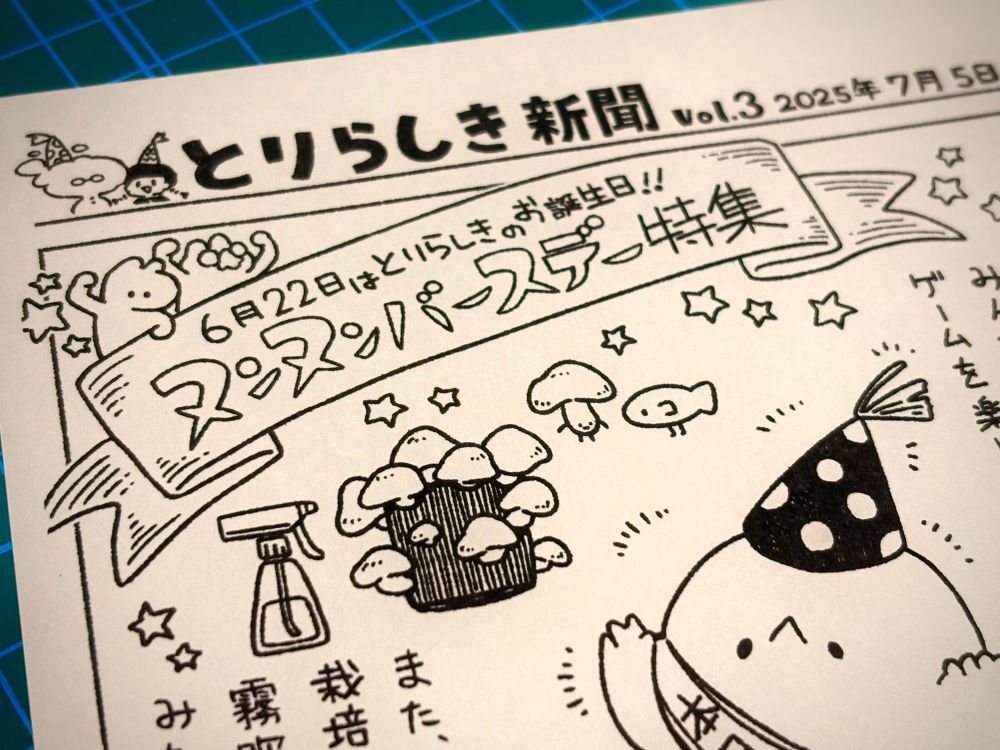 とりらしき新聞 Vol.3 2025年7月5日
6月22日はとりらしきのお誕生日!!
ヌンヌンバースデー特集
ゲームを楽
また、
栽培
霧吹